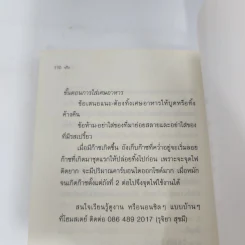 ขั้นตอนการใส่เศษอาหาร
ข้อเสนอแนะ-ต้องทิ้งเศษอาหารให้บูดหรือทิ้ง
ค้างคืน
ข้อห้าม-อย่าใส่ของที่มาย่อยสลายและอย่าใส่ของ
ที่มีรสเปรี้ยว
เมื่อมีก๊าซเกิดขึ้น ถังเก็บก๊าซที่คว่ำอยู่จะเริ่มลอย
ก๊าซที่เกิดมาชุดแรกให้ปล่อยทิ้งไปก่อน เพราะจะจุดไฟ
ติดยาก จะมีปริมาณคาร์บอนไดออกไซด์มาก เมื่อหมัก
จนเกิดก๊าซตั้งแต่ถังที่ 2 ต่อไปจึงจุดไฟใช้งานได้
สนใจเรียนรู้ดูงาน หรือนอนชิลๆ แบบบ้านๆ
ที่โฮมสเตย์ ติดต่อ 086 489 2017 (รุจิยา สุขมี)